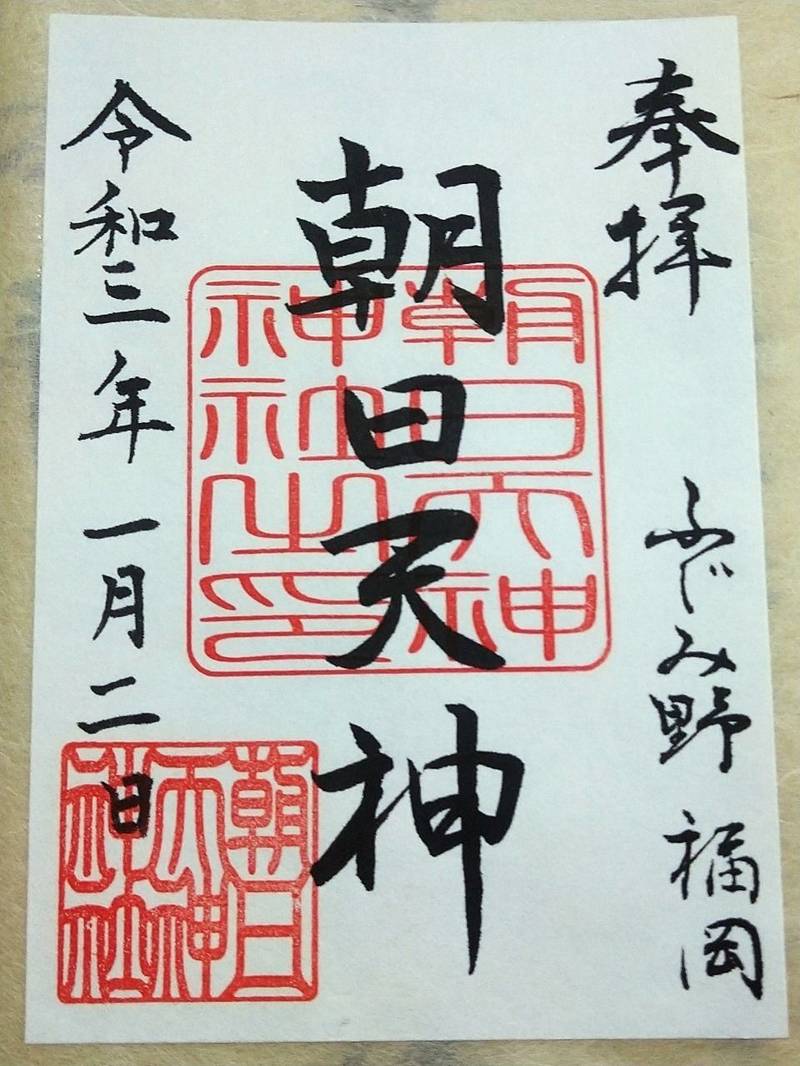 奉拝 ふじみ野 福岡
朝日天神
令和三年一月二日
朝日天神
神社之印
朝日
天神
神社